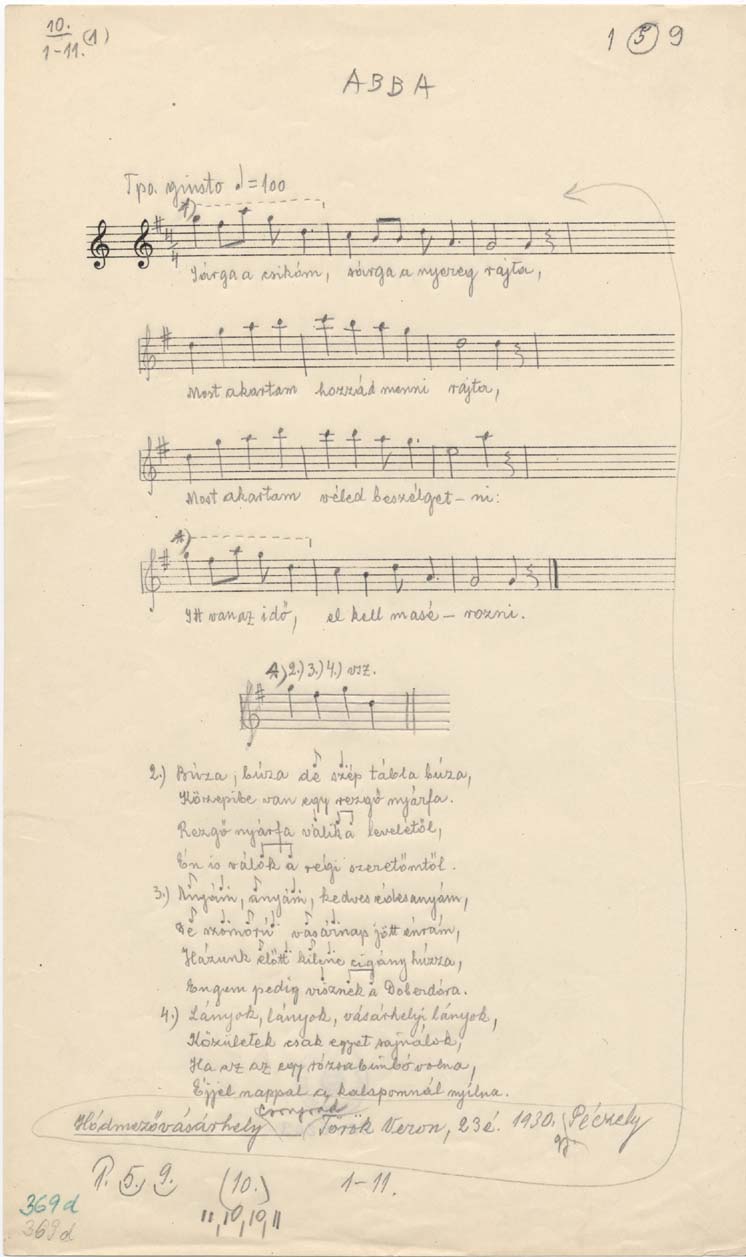 10.
1-11. (1)
1 5 9
ABBA
Tpo. giusto ♩=100
A)
4
4
Sárga a csikóm, sárga a nyereg rajta,
Most akartam hozzád menni rajta,
Most akartam véled beszélget-ni:
A)
Itt van az idő, el kell masé-rozni.
A) 2.) 3.) 4.) vsz.
2.) Búza, búza de szép tábla búza,
Közepibe van egy rezgő nyárfa.
Rezgő nyárfa válik a levelétől,
Én is válok a régi szeretőmtől.
3.) Anyám, anyám, kedves édesanyám,
De szomorú vasárnap jött énrám,
Házunk előtt kilenc cigány húzza,
Engem pedig visznek a Doberdóra.
4.) Lányok, lányok, vásárhelyi lányok,
Közületek csak egyet sajnálok,
Ha az az egy rózsabimbó volna,
Éjjel nappal a kalapomnál nyílna.
Csongrád
Hódmezővásárhely — Török Veron, 23é. 1930. Péczely
P. 5. 9. (10.) 1-11.
11, 10, 10, 11
369d
369d